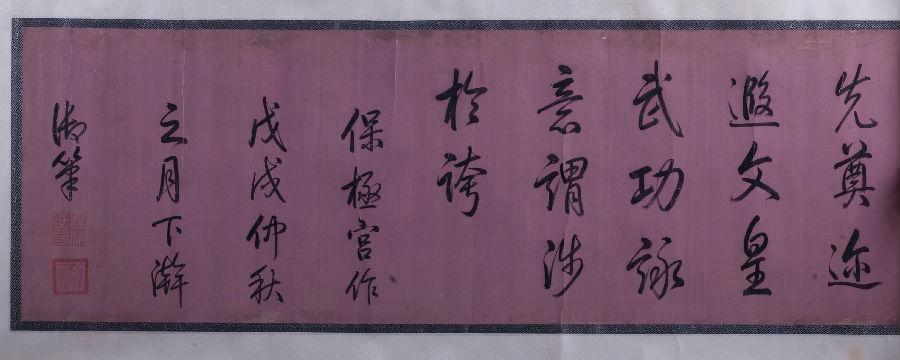 先奠迩
遐文皇
武功詠
意謂涉
於誇
保極宮作
戊戌仲秋
之月下澣
御筆